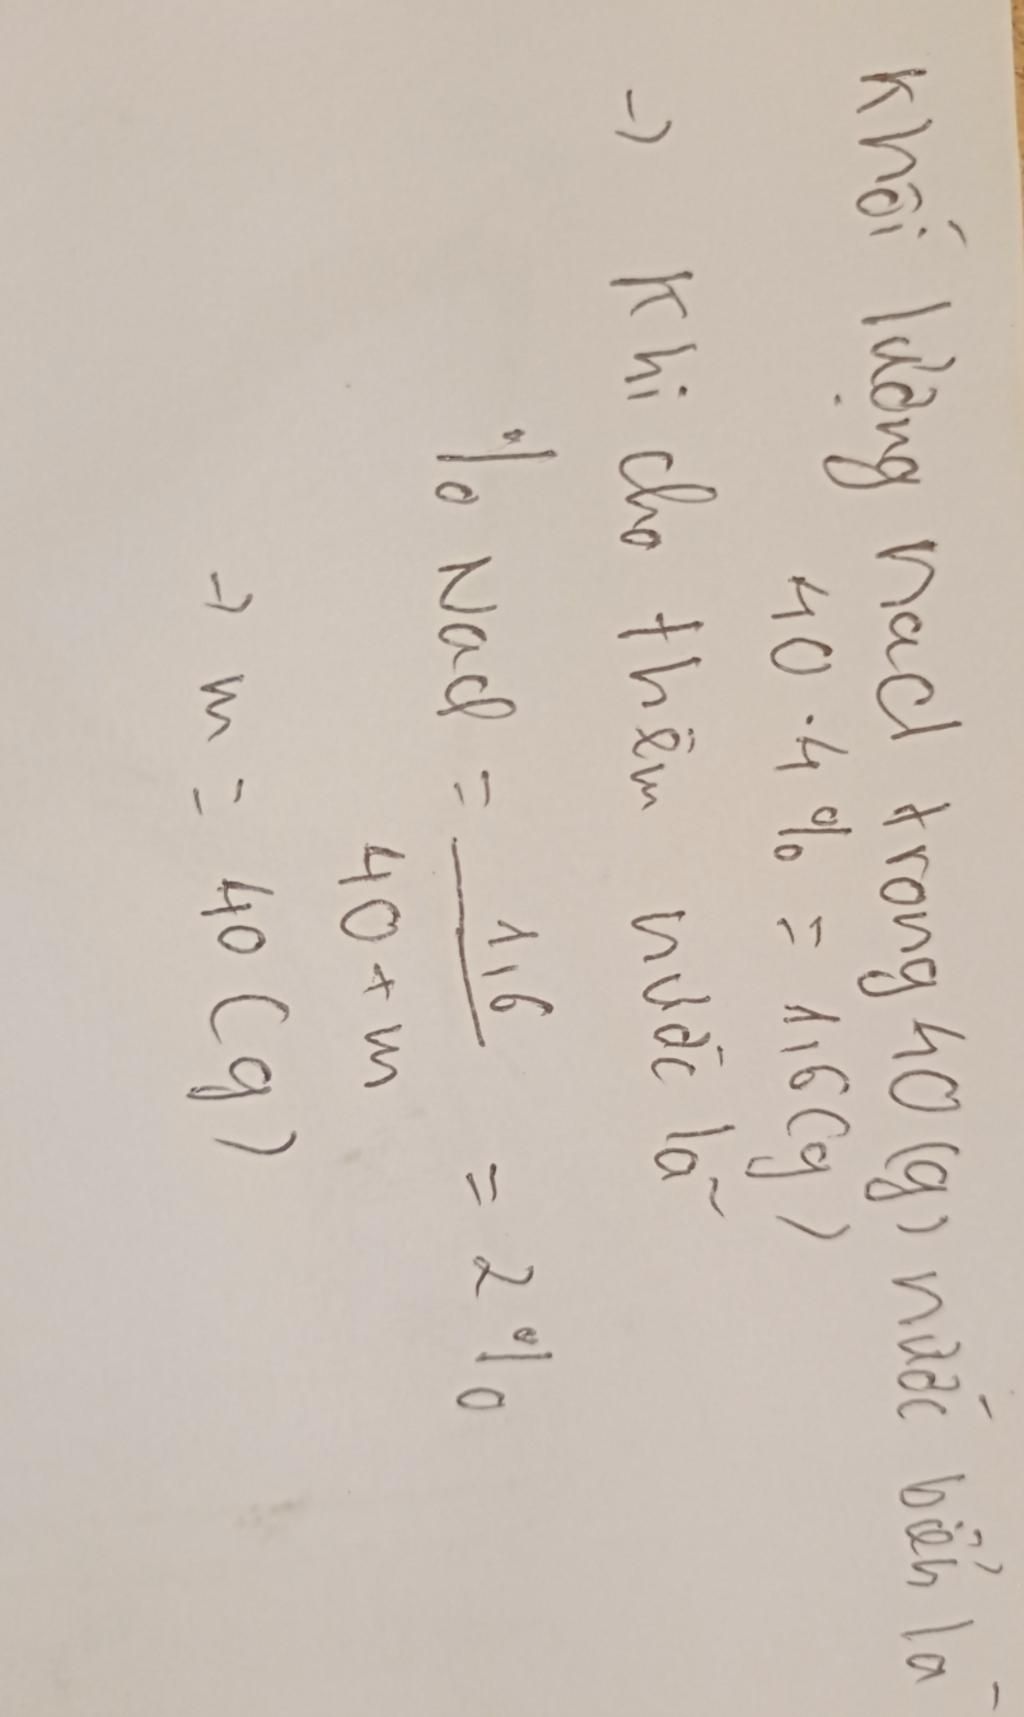 Khối lượng nacl trong 40 (g) nước biển là
40 . 4 % = 1,6 (g)
→ Khi cho thêm nước là
% Nacl = 1,6 / 40 + m = 2 %
→ m = 40 (g)